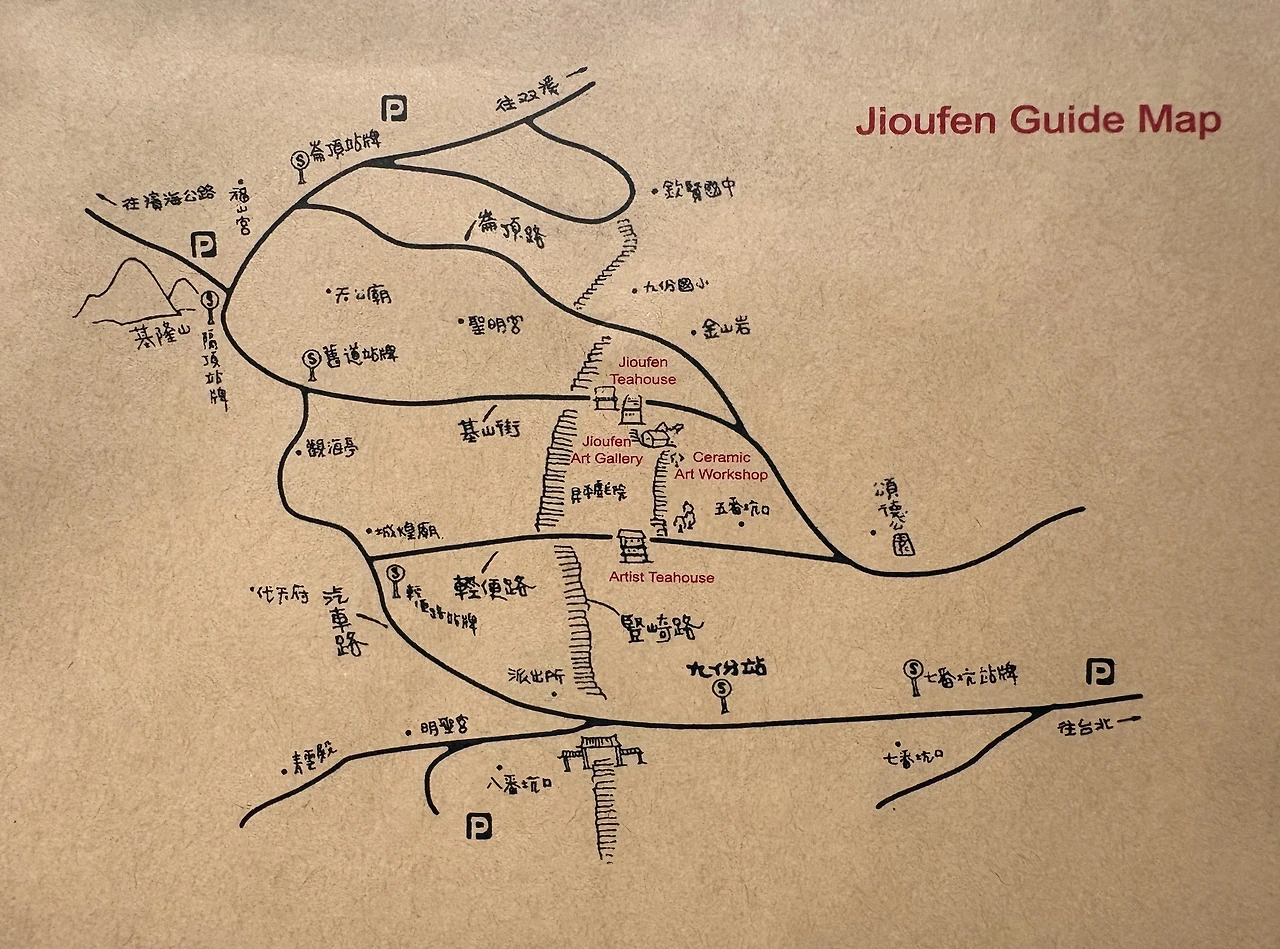 Jioufen Guide Map
P
往双溪
崙頂站牌
往濱海公路
福山宮
欽賢國中
P
崙頂路
九份國小
天公廟
聖明宮
金山岩
基隆山
隔頂站牌
舊道站牌
Jioufen
Teahouse
基山街
觀海亭
Jioufen
Art Gallery
Ceramic
Art Workshop
昇平戲院
五番坑口
頌德公園
城煌廟
輕便路
輕便路站牌
Artist Teahouse
代天府
汽車路
豎崎路
派出所
九份站
七番坑站牌
P
往台北
明聖宮
青雲殿
八番坑口
七番坑口
P